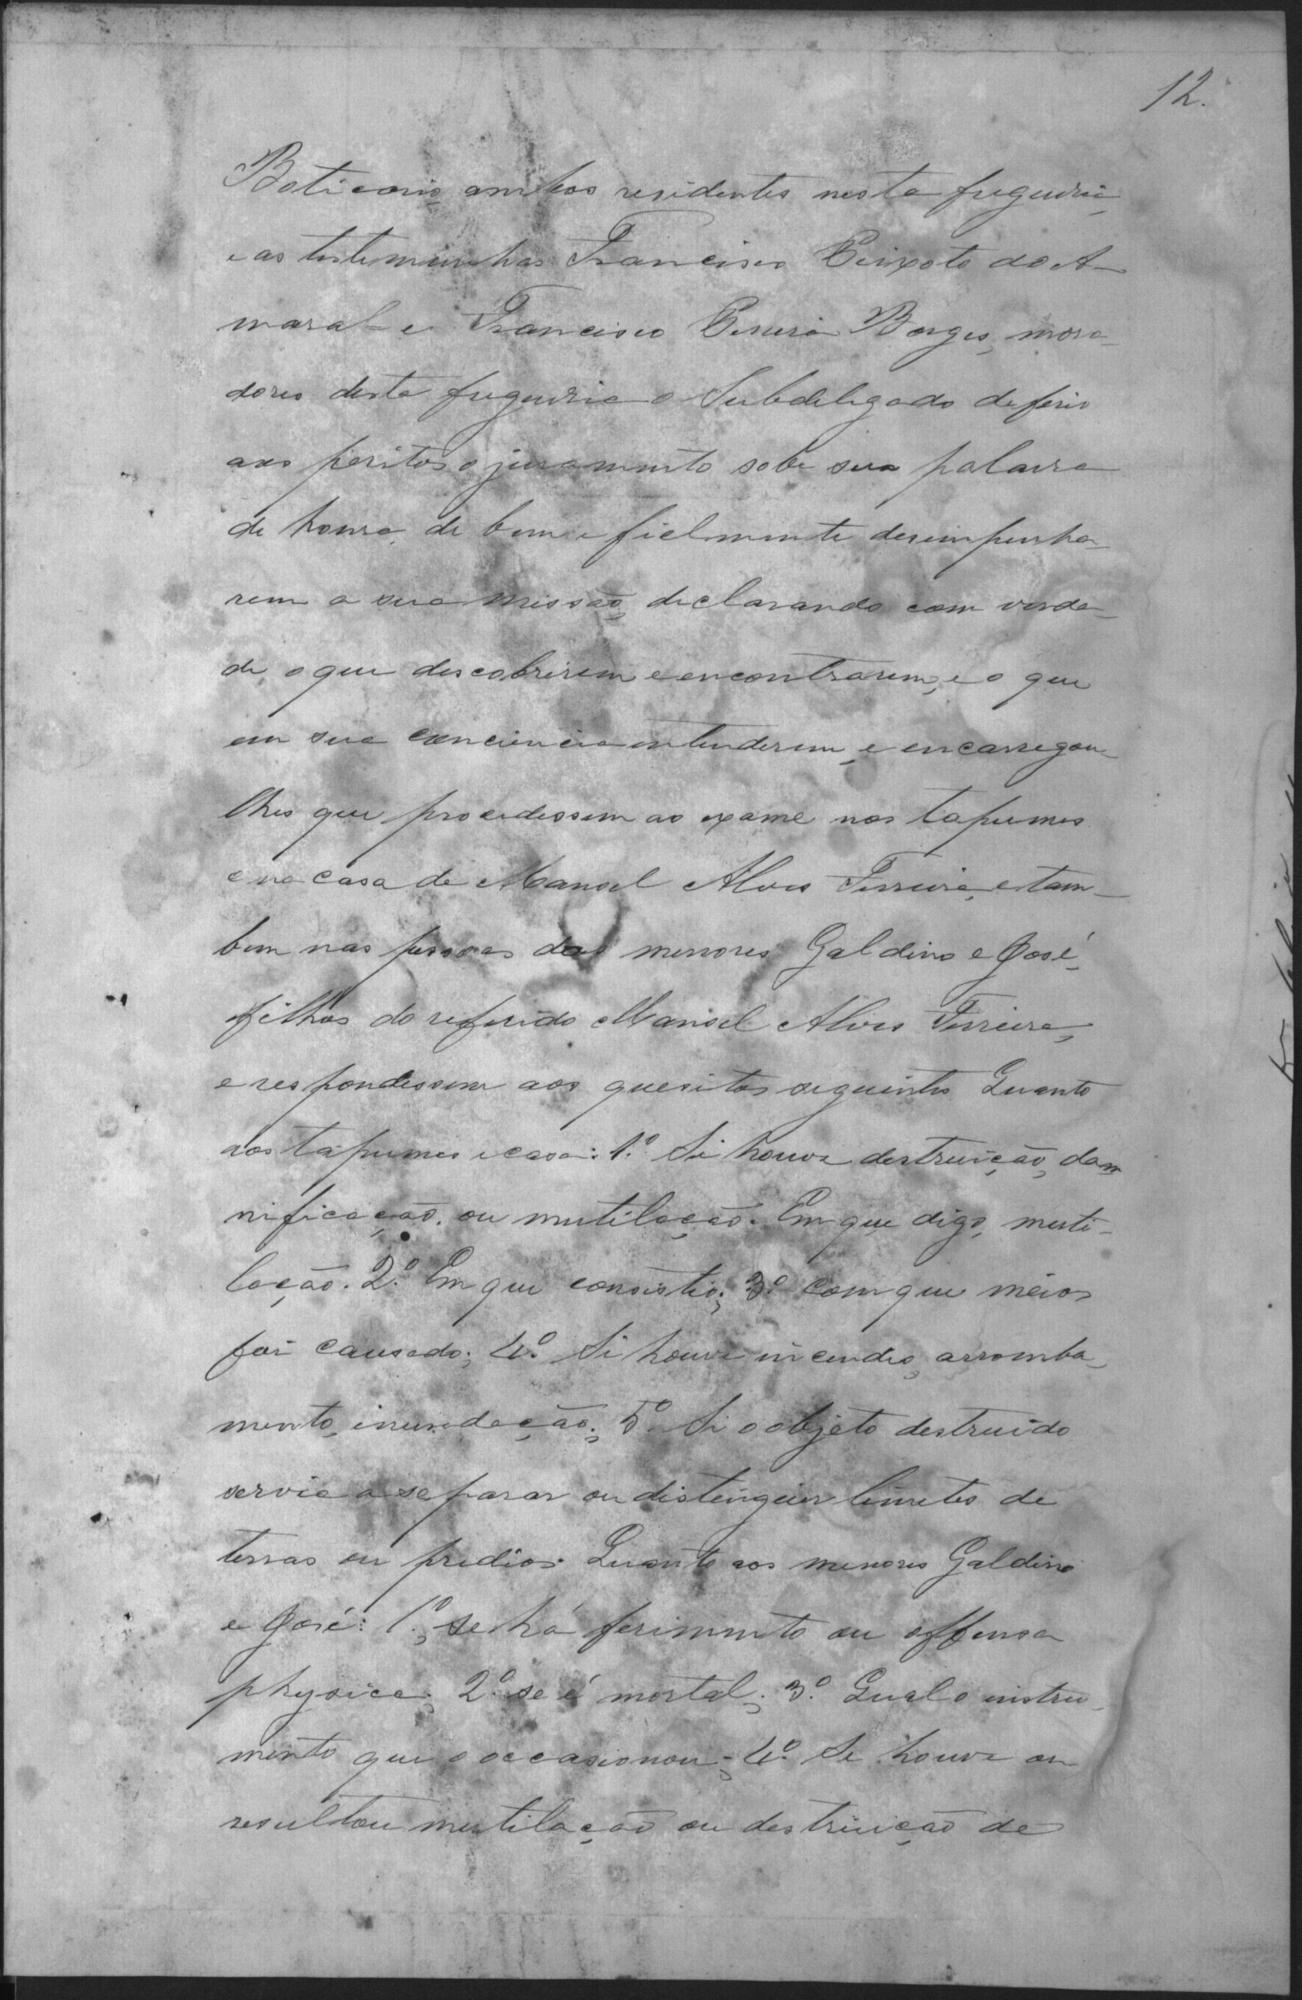 12.
Boticario, ambos residentes nesta freguezia,
e as testemunhas Francisco Peixoto do A-
maral e Francisco Pereira Borges, mora-
dores desta freguezia o Subdelegado deferio
aos peritos o juramento sobe sua palavra
de honra, de bem e fielmente desempenha-
rem a sua missão, declarando com verda-
de, o que descobrirem e encontrarem, e o que
em sua conciencia entenderem, e encarregou-
lhes que procedessem ao exame nos tapumes
e na casa de Manoel Alves Ferreira, e tam-
bem nas pessoas dos menores Galdino e José,
filhos do referido Manoel Alves Ferreira,
e respondessem aos quesitos seguintes Quanto
aos tapumes e casa: 1.º Si houve destruição, dam
nificação, ou mutilação. Em que digo, muti-
lação. 2.º Em que consistio; 3.º com que meios
foi causado; 4.º Si houve incendio, arromba-
mento, inundação; 5.º Si o objeto destruido
servia a separar ou distinguir limites de
terras ou predios. Quanto aos menores Galdino
e José: 1.º, se há ferimento ou offensa
physica; 2.º se é mortal; 3.º Qual o instru-
mento que o occasionou; 4.º Se houve ou
resultou mutilação ou destruição de